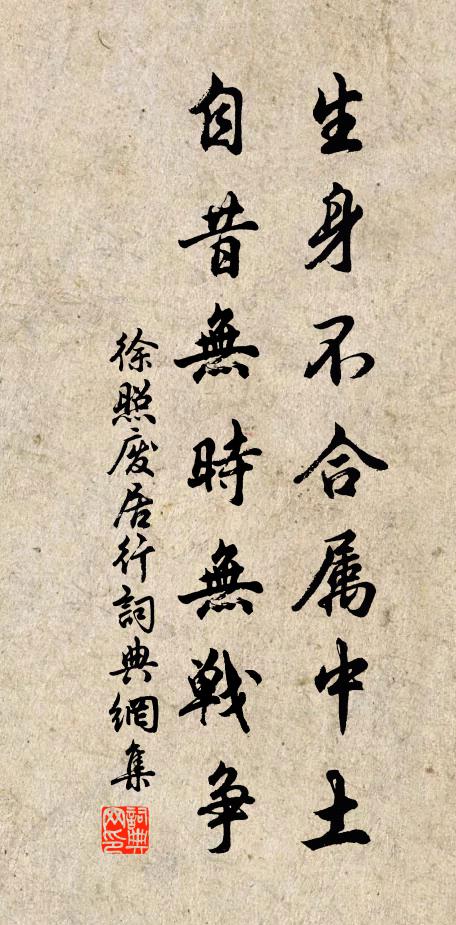 生身不合属中土
自昔無時無戦争
徐照廢居行詞典網集
詞典网印